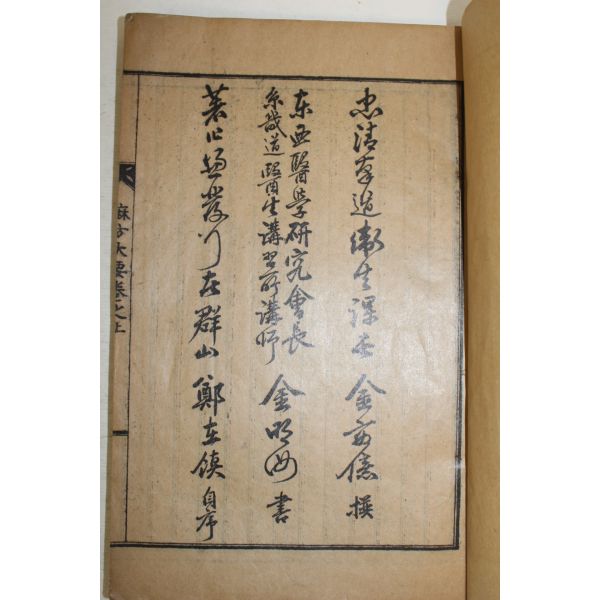 忠清南道衛生課長 金 撰
东亞醫學研究會長
京畿道醫生講習所講師
金明汝 書
著作兼發行 在群山 鄭在 自序
麻方大要卷之上